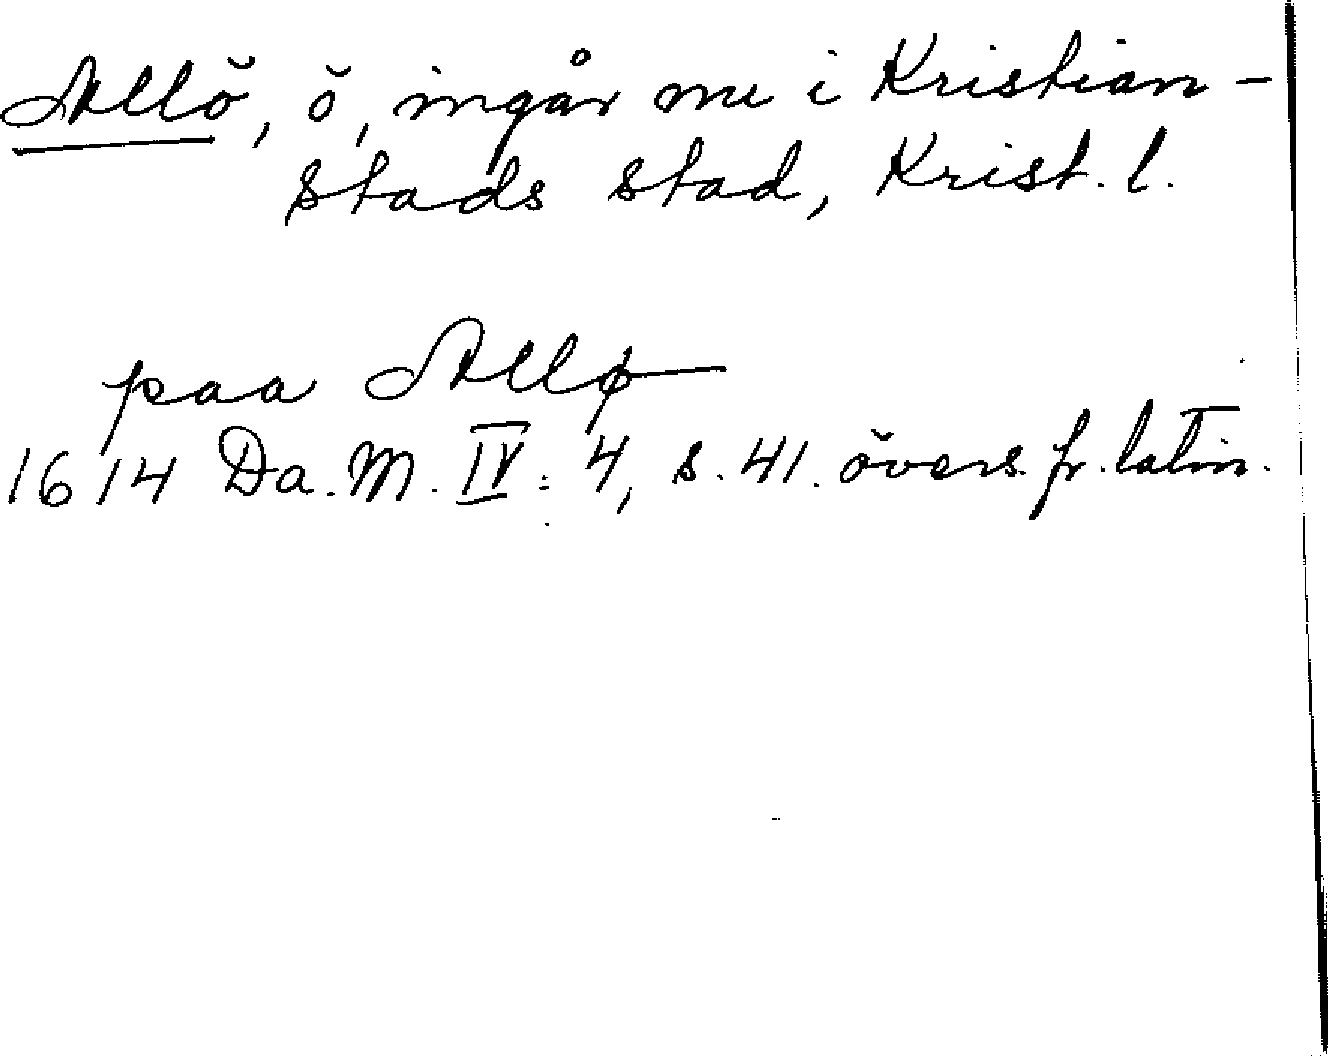 Allö, ö, ingår nu i Kristian-
stads stad, Krist. l.
paa Allø
1614 Da. M. IV: 4, s. 41. övers. fr. latin.